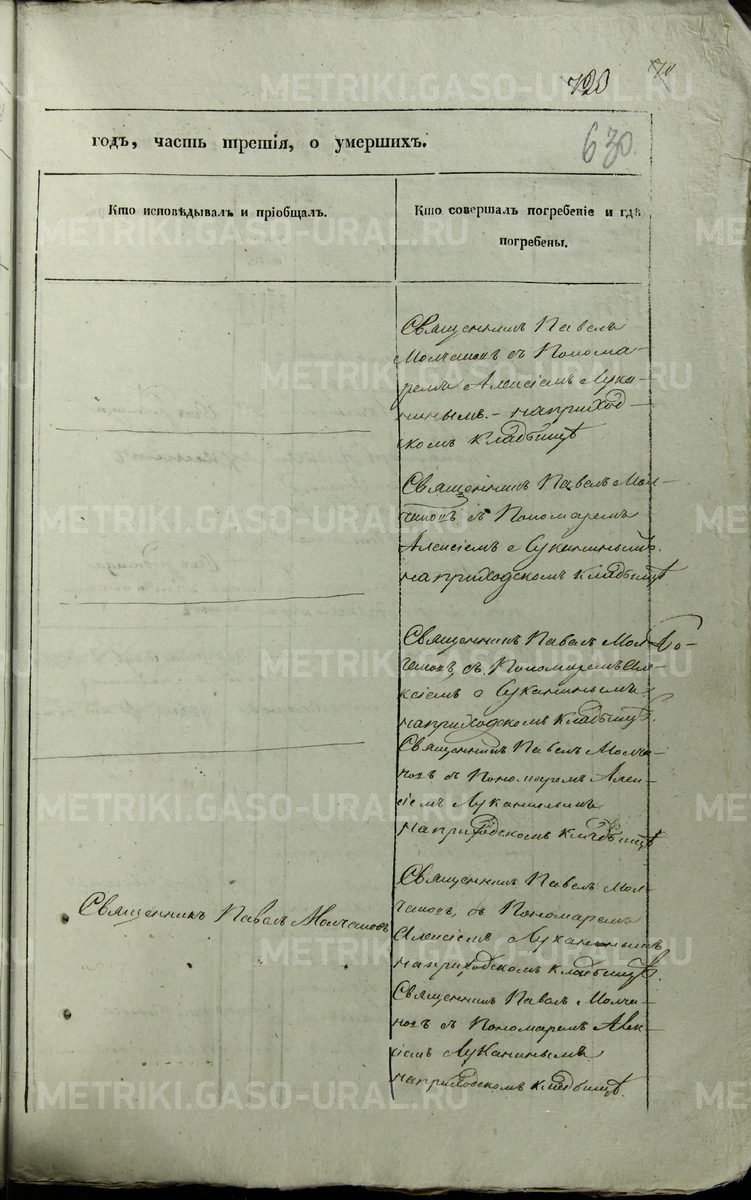 720
630
годъ, часть третія, о умершихъ.
Кто исповѣдывалъ и пріобщалъ.
Кто совершалъ погребеніе и гдѣ
погребены.
Священникъ Павелъ
Молчановъ съ Понома-
ремъ Алексіемъ Лука-
нинымъ - на приход-
скомъ кладбищѣ
Священникъ Павелъ Мол-
чановъ съ Пономаремъ
Алексіемъ Луканинымъ.
на приходскомъ кладбищѣ
Священникъ Павелъ Мол-
чановъ, съ Пономаремъ Але-
ксіемъ Луканинымъ
на приходскомъ кладбищѣ.
Священникъ Павелъ Молча-
новъ съ Пономаремъ Алек-
сіемъ Луканинымъ
на приходскомъ кладбищѣ
Священникъ Павелъ Молчановъ
Священникъ Павелъ Мол-
чановъ, съ Пономаремъ
Алексіемъ Луканинымъ
на приходскомъ кладбищѣ.
Священникъ Павелъ Молча-
новъ съ Пономаремъ Алек-
сіемъ Луканинымъ
на приходскомъ кладбищѣ.
METRIKI.GASO-URAL.RU
METRIKI.GASO-URAL.RU
METRIKI.GASO-URAL.RU
METRIKI.GASO-URAL.RU
METRIKI.GASO-URAL.RU
METRIKI.GASO-URAL.RU
METRIKI.GASO-URAL.RU
METRIKI.GASO-URAL.RU